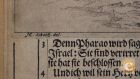 3 Denn Pharao wird sag
Israel: Sie sind verirret
sie hat sie beschlossen
Und ich wil sein Her